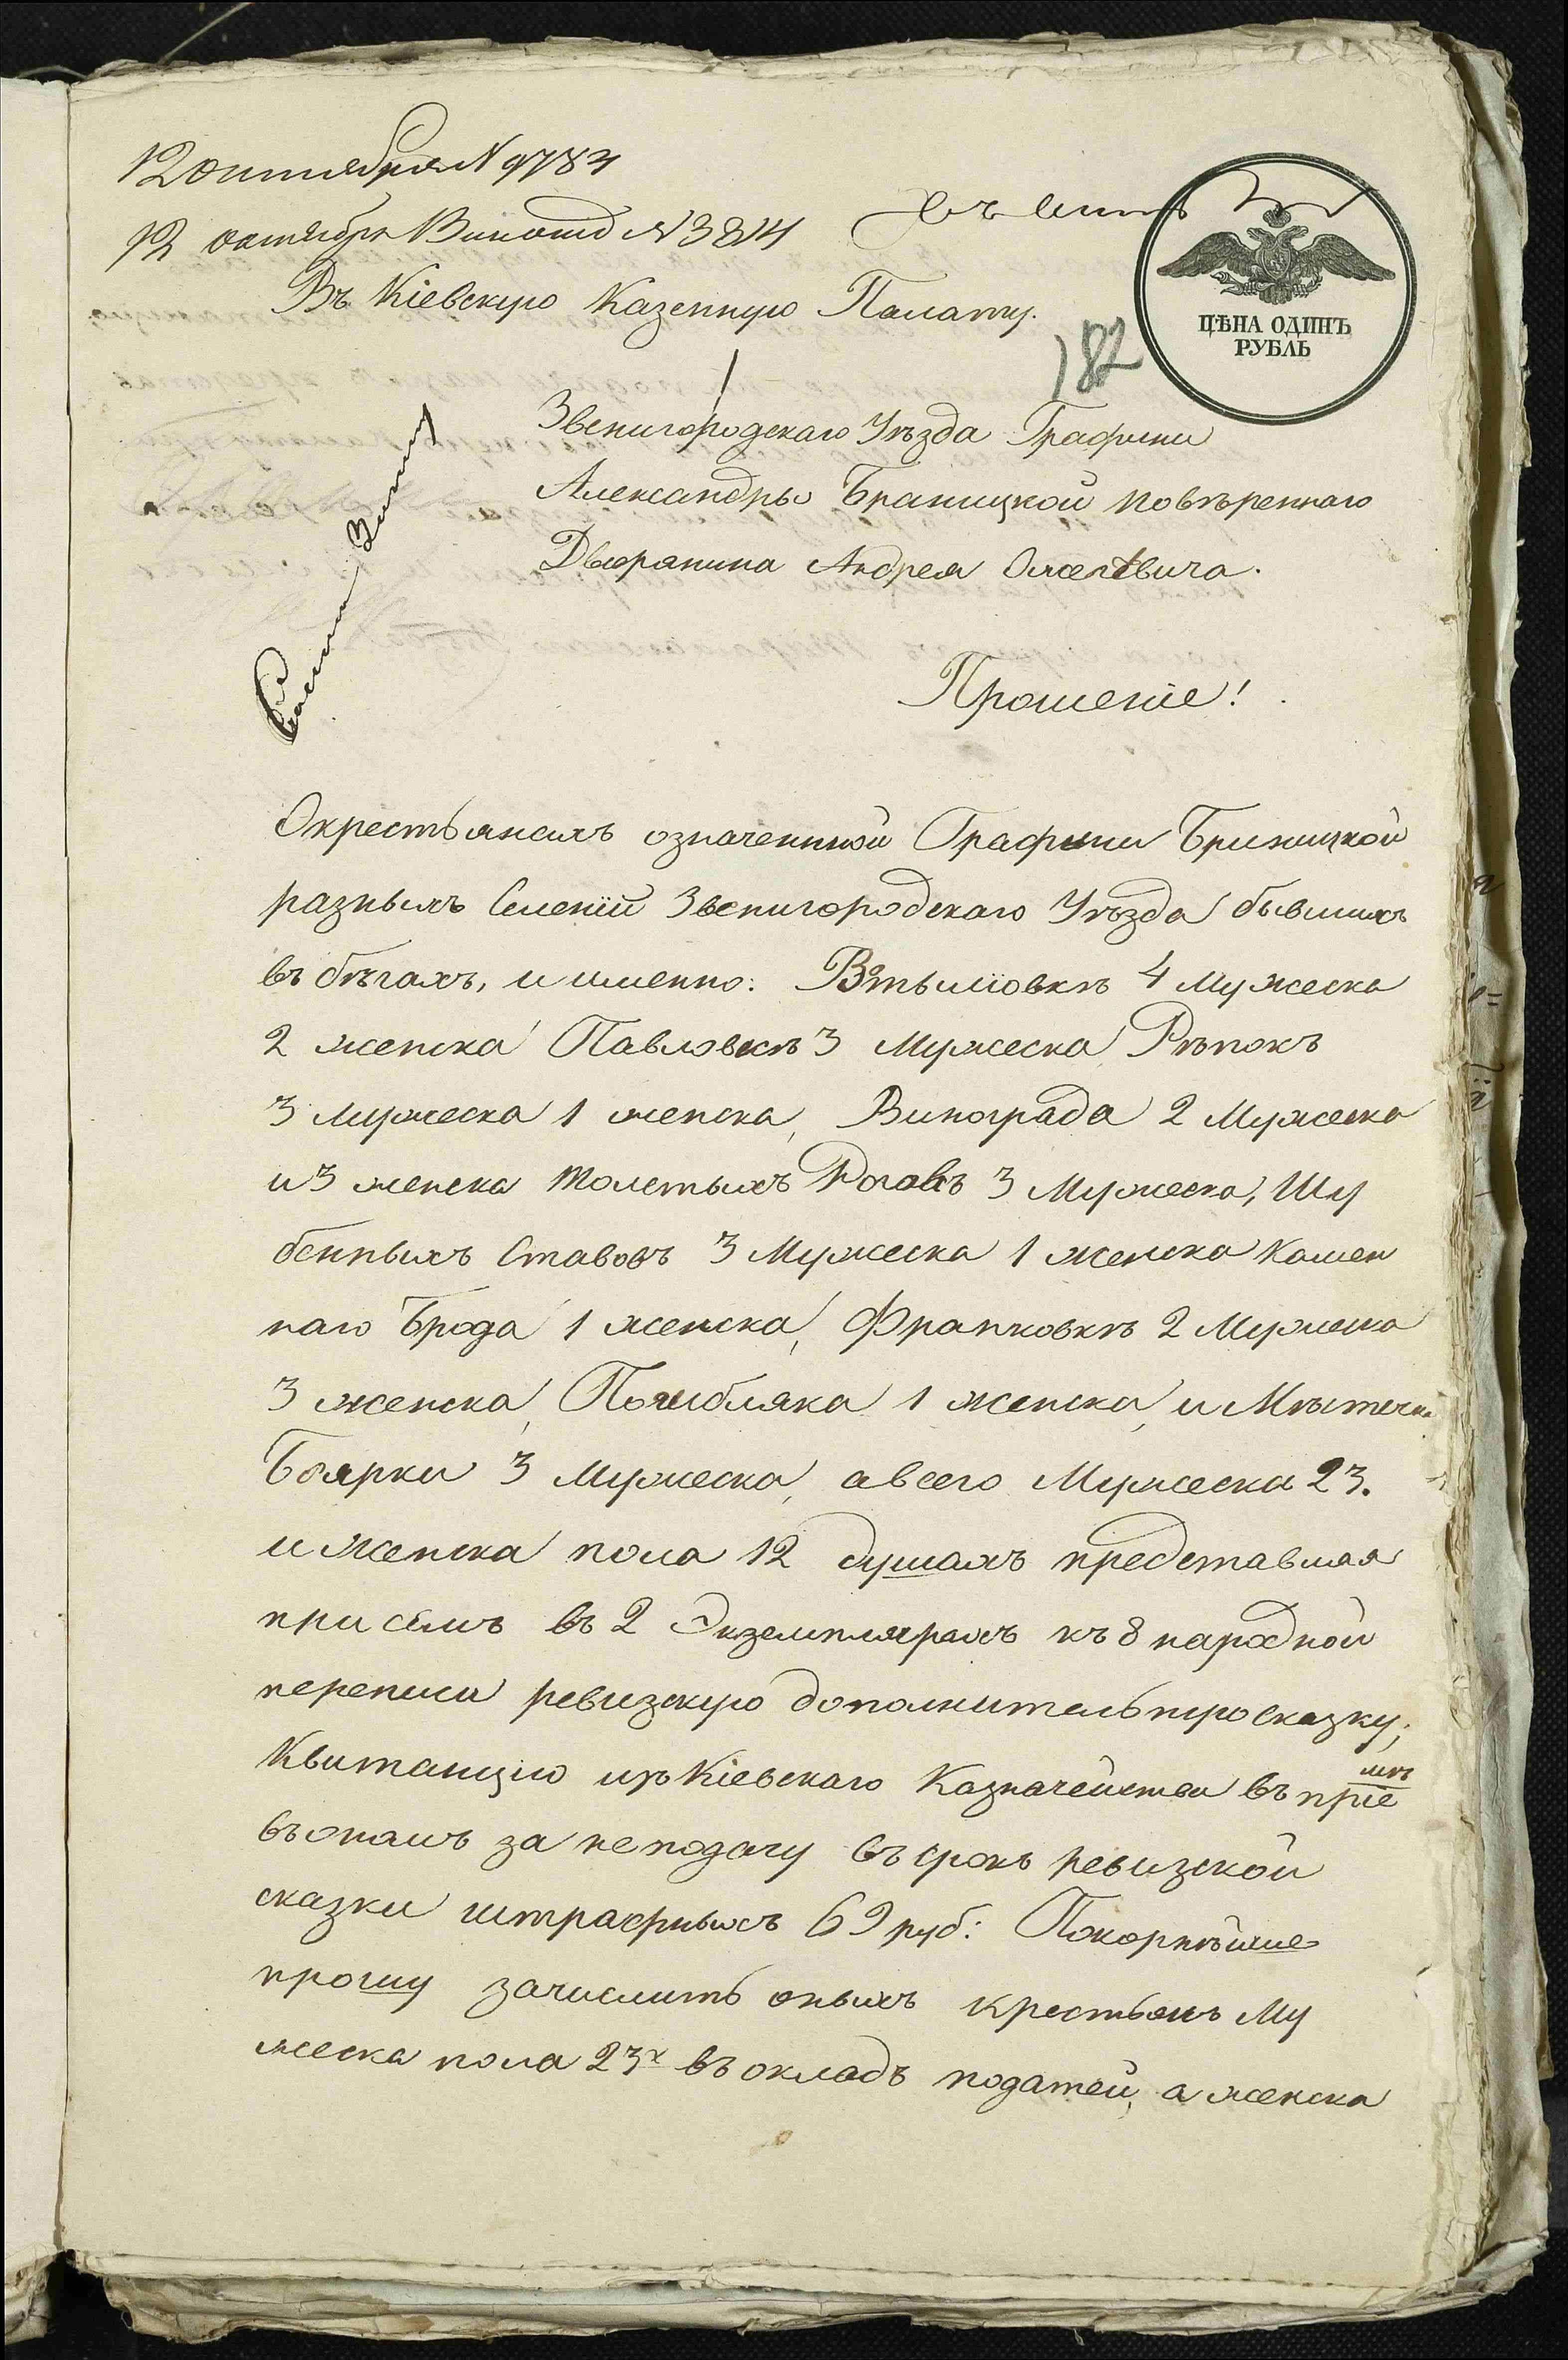 12 октября N 9783
12 октября N 3814
182
ЦѢНА ОДИНЪ
РУБЛЬ
Въ Кіевскую Казенную Палату.
Звенигородскаго Уѣзда Графини
Александры Браницкой повѣреннаго
Дворянина Андрея
Прошеніе!
Окрестьянахъ означенной Графини Браницкой
разныхъ Селеній Звенигородскаго Уѣзда бывшихъ
въ бѣгахъ, и именно: 4 Мужеска
2 женска Павловкѣ 3 Мужеска Рѣпокъ
3 мужеска 1 женска, Винограда 2 Мужеска
и 3 женска Толстыхъ Роговъ 3 Мужеска, Шу
бенныхъ Ставовъ 3 Мужеска 1 женска Камен
наго Брода 1 женска, Франковкѣ 2 Мужеска
3 женска, 1 женска, и Мѣстечка
Боярки 3 Мужеска, авсего Мужеска 23.
и Женска пола 12 душахъ представляя
при семъ въ 2 Экземплярахъ къ 8 народной
переписи ревизскую дополнительную сказку,
Квитанцію изъ Кіевскаго Казначейства въ пріе
мѣ
въ онамъ за неподачу въ срокъ ревизской
сказки штрафныхъ 69 руб: Покорнѣйше
прошу зачислить оныхъ крестьянъ Му
жеска пола 23х въ окладъ податей, а женска